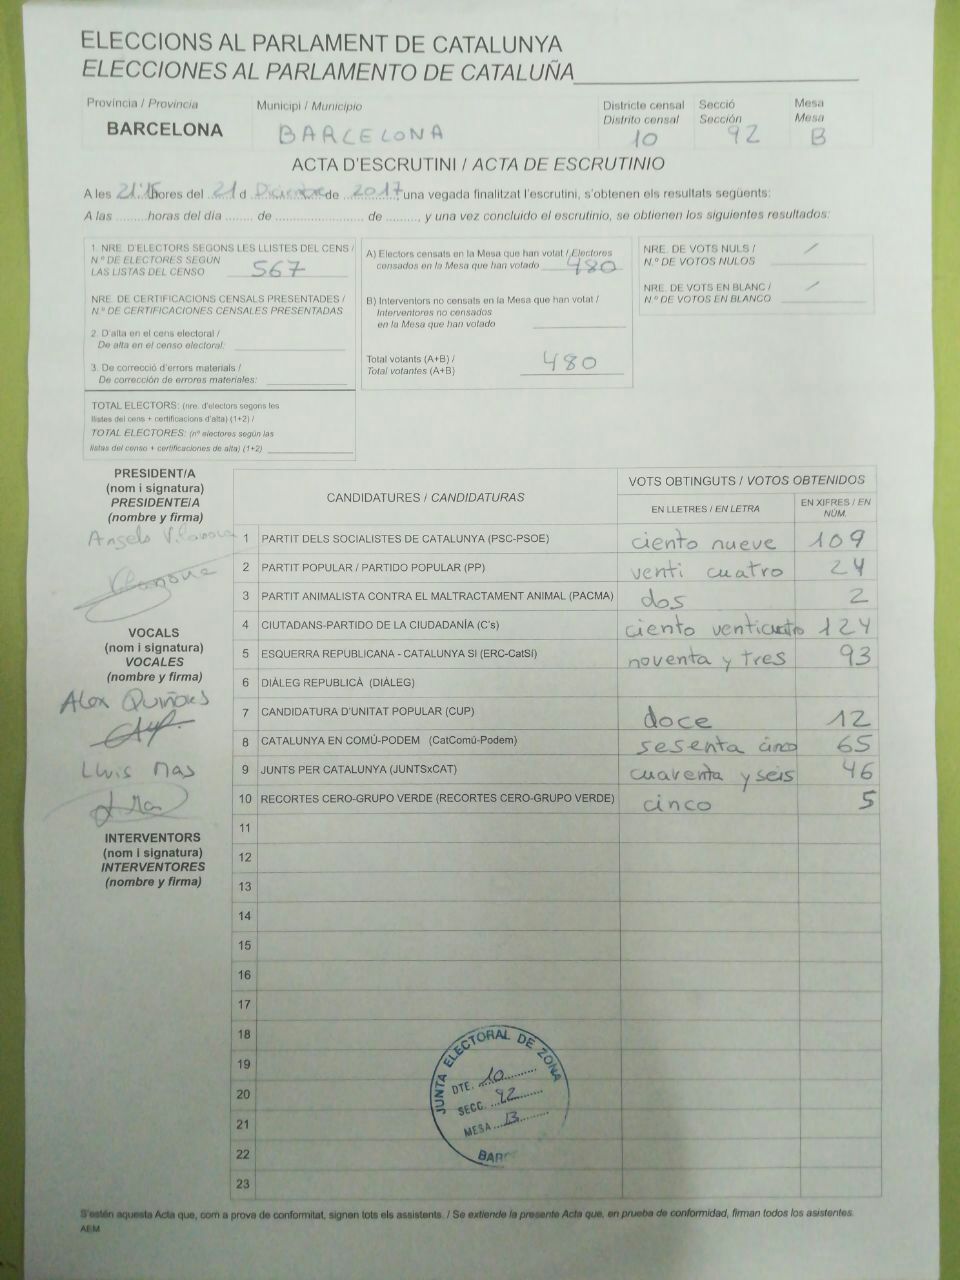 ELECCIONS AL PARLAMENT DE CATALUNYA
ELECCIONES AL PARLAMENTO DE CATALUÑA
Província / Provincia
BARCELONA
Municipi / Municipio
BARCELONA
Districte censal
Distrito censal
10
Secció
Sección
92
Mesa
Mesa
B
ACTA D'ESCRUTINI / ACTA DE ESCRUTINIO
A les 21:15 hores del 21 d Diciembre de 2017, una vegada finalitzat l'escrutini, s'obtenen els resultats següents:
A las ......... horas del día ........ de ......................... de ..........., y una vez concluido el escrutinio, se obtienen los siguientes resultados:
1. NRE. D'ELECTORS SEGONS LES LLISTES DEL CENS /
N.º DE ELECTORES SEGÚN
LAS LISTAS DEL CENSO 567
NRE. DE CERTIFICACIONS CENSALS PRESENTADES /
N.º DE CERTIFICACIONES CENSALES PRESENTADAS
2. D'alta en el cens electoral /
De alta en el censo electoral:
3. De correcció d'errors materials /
De corrección de errores materiales:
TOTAL ELECTORS: (nre. d'electors segons les
llistes del cens + certificacions d'alta) (1+2) /
TOTAL ELECTORES: (nº electores según las
listas del censo + certificaciones de alta) (1+2)
A) Electors censats en la Mesa que han votat / Electores
censados en la Mesa que han votado 480
B) Interventors no censats en la Mesa que han votat /
Interventores no censados
en la Mesa que han votado
Total votants (A+B) /
Total votantes (A+B) 480
NRE. DE VOTS NULS /
N.º DE VOTOS NULOS /
NRE. DE VOTS EN BLANC /
N.º DE VOTOS EN BLANCO /
PRESIDENT/A
(nom i signatura)
PRESIDENTE/A
(nombre y firma)
Angels Vilanova
Vilanova
VOCALS
(nom i signatura)
VOCALES
(nombre y firma)
Alex Quiñones
Lluis Mas
INTERVENTORS
(nom i signatura)
INTERVENTORES
(nombre y firma)
CANDIDATURES / CANDIDATURAS
VOTS OBTINGUTS / VOTOS OBTENIDOS
EN LLETRES / EN LETRA
EN XIFRES / EN
NÚM.
1 PARTIT DELS SOCIALISTES DE CATALUNYA (PSC-PSOE) ciento nueve 109
2 PARTIT POPULAR / PARTIDO POPULAR (PP) venti cuatro 24
3 PARTIT ANIMALISTA CONTRA EL MALTRACTAMENT ANIMAL (PACMA) dos 2
4 CIUTADANS-PARTIDO DE LA CIUDADANÍA (C's) ciento venticuatro 124
5 ESQUERRA REPUBLICANA - CATALUNYA SÍ (ERC-CatSí) noventa y tres 93
6 DIÀLEG REPUBLICÀ (DIÀLEG)
7 CANDIDATURA D'UNITAT POPULAR (CUP) doce 12
8 CATALUNYA EN COMÚ-PODEM (CatComú-Podem) sesenta cinco 65
9 JUNTS PER CATALUNYA (JUNTSxCAT) cuaventa y seis 46
10 RECORTES CERO-GRUPO VERDE (RECORTES CERO-GRUPO VERDE) cinco 5
11
12
13
14
15
16
17
18
19
20
21
22
23
JUNTA ELECTORAL DE ZONA
DTE. 10
SECC. 92
MESA B
S'estén aquesta Acta que, com a prova de conformitat, signen tots els assistents. / Se extiende la presente Acta que, en prueba de conformidad, firman todos los asistentes.
AEM